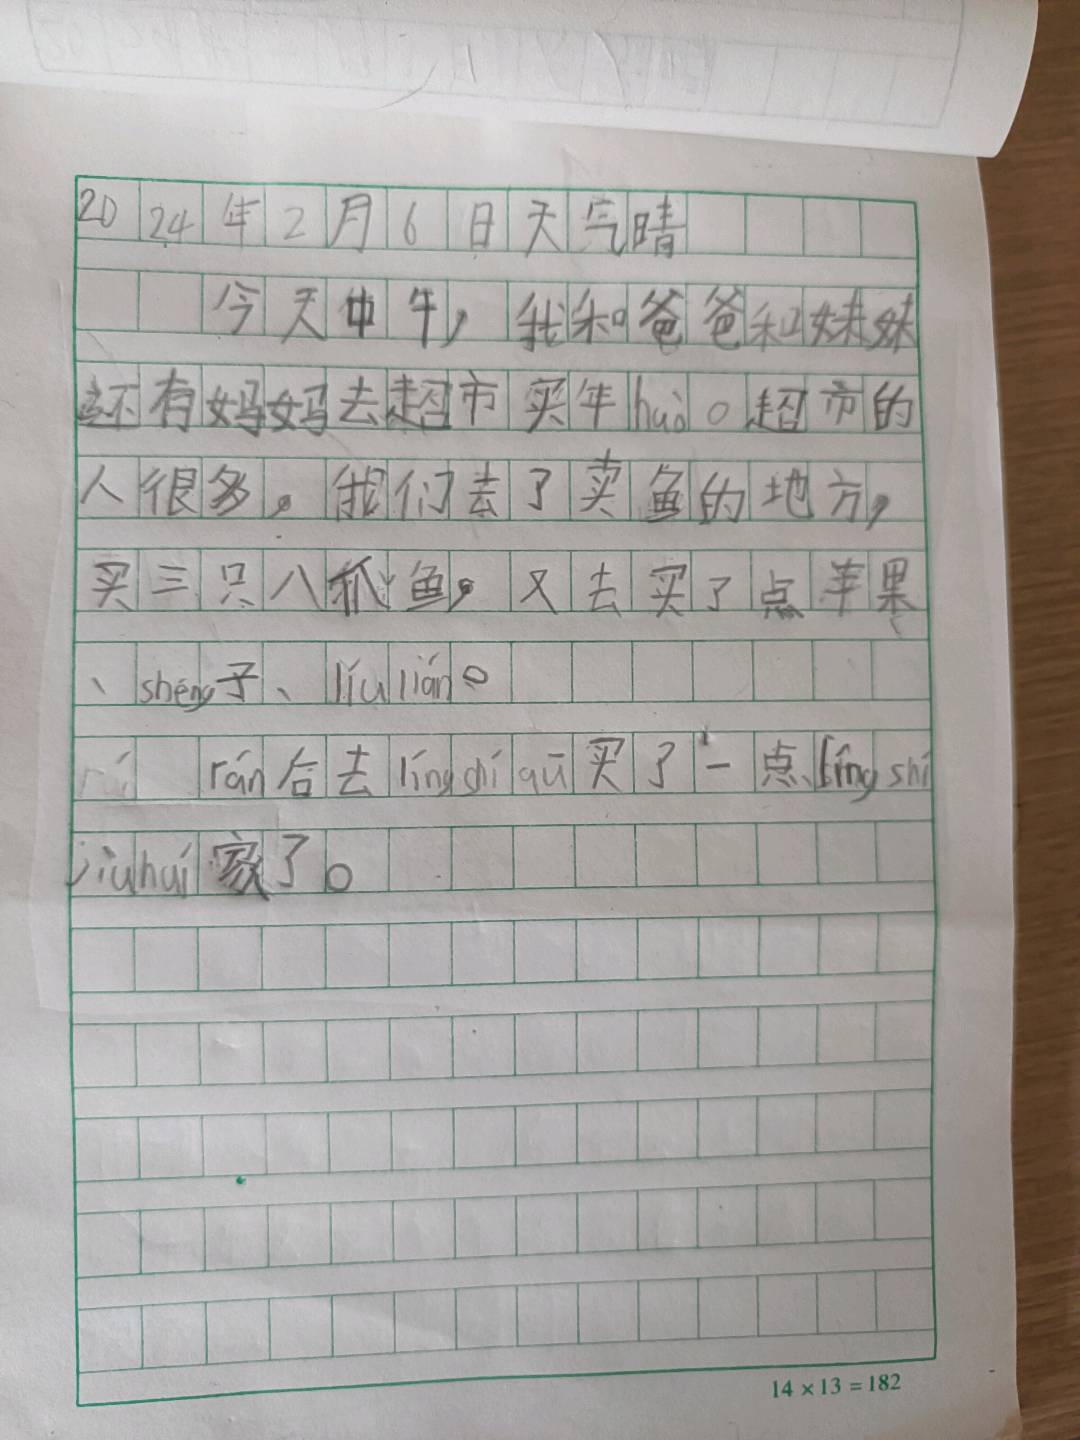 2024年2月6日天气晴
今天中午，我和爸爸和妹妹
还有妈妈去超市买年huò。超市的
人很多。我们去了卖鱼的地方，
买三只八抓鱼，又去买了点苹果
、shéng子、líulián。
rán后去língshí qū买了一点língshí
jiùhuí家了。
14×13=182